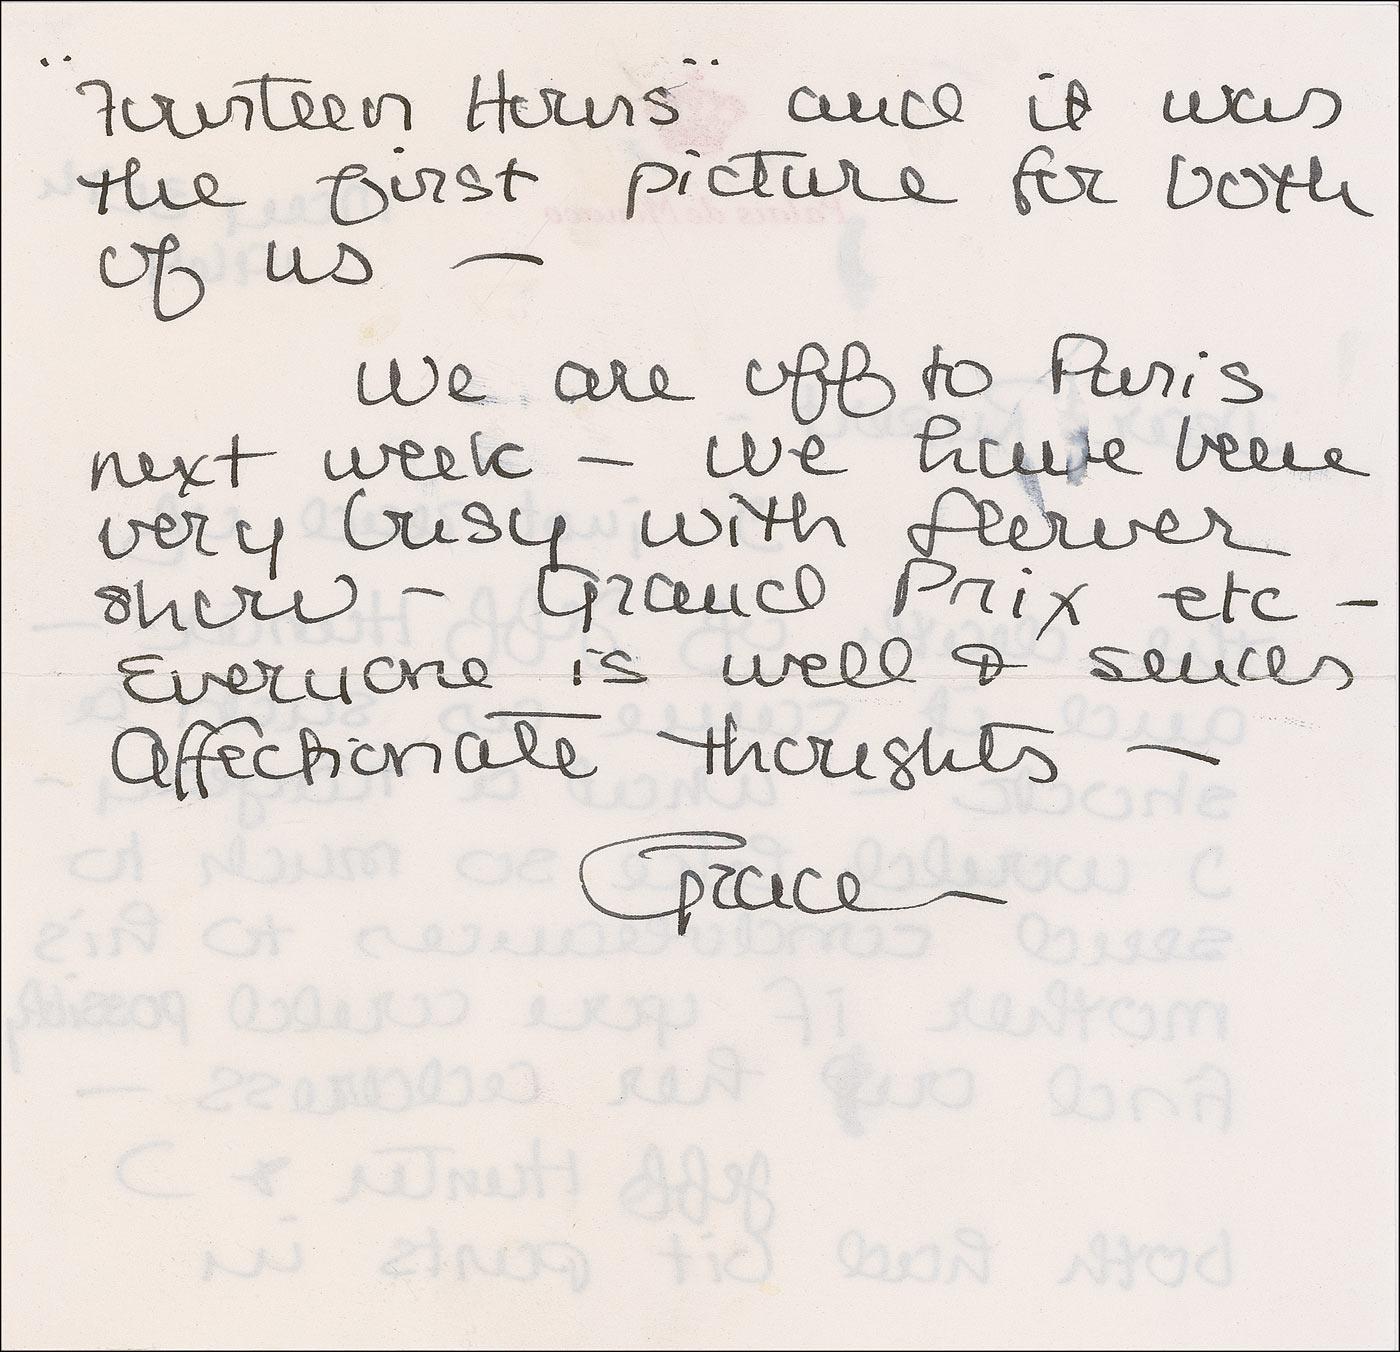 "Fourteen Hours" and it was
the first picture for both
of us —
We are off to Paris
next week – we have been
very busy with flower
show – Grand Prix etc –
Everyone is well & sends
affectionate thoughts —
Grace